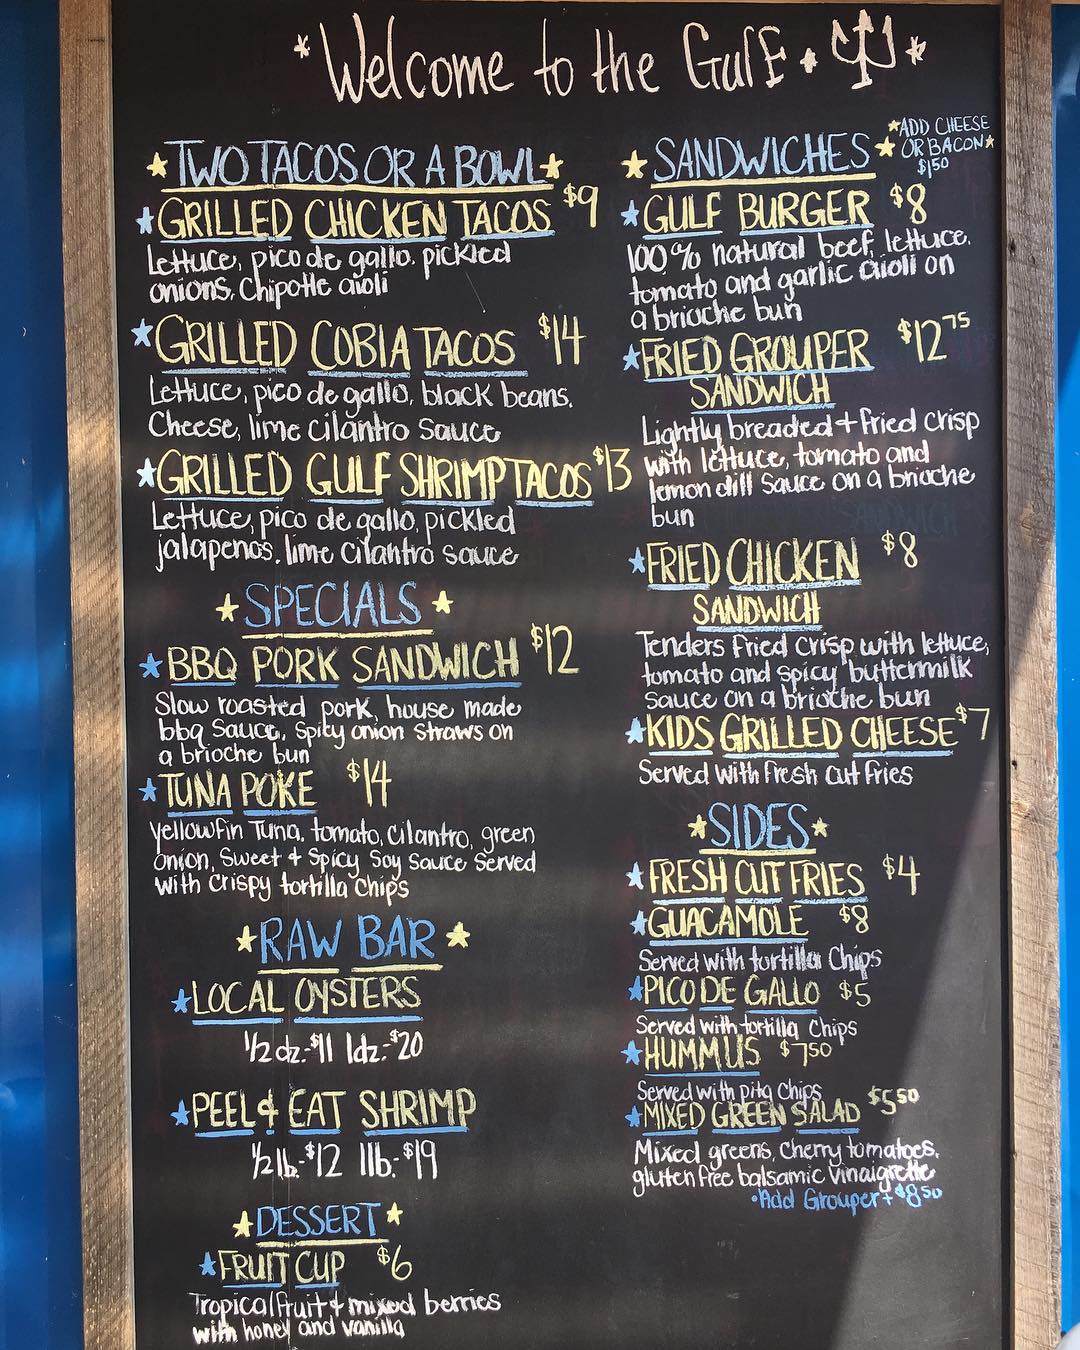 *Welcome to the Gulf.*
TWO TACOS OR A BOWL
GRILLED CHICKEN TACOS $9
Lettuce, pico de gallo, pickled
onions, Chipotle aioli
GRILLED COBIA TACOS $14
Lettuce, pico de gallo, black beans,
Cheese, lime cilantro sauce
GRILLED GULF SHRIMP TACOS $13
Lettuce, pico de gallo, pickled
jalapenos, lime cilantro sauce
SPECIALS
BBQ PORK SANDWICH $12
Slow roasted pork, house made
bbq sauce, spicy onion straws on
a brioche bun
TUNA POKE $14
Yellowfin Tuna, tomato, cilantro, green
onion, Sweet & Spicy Soy Sauce Served
with crispy tortilla chips
RAW BAR
LOCAL OYSTERS
1/2 dz.-$11 1dz.-$20
PEEL & EAT SHRIMP
1/2 lb.-$12 1lb.-$19
DESSERT
FRUIT CUP $6
Tropical fruit & mixed berries
with honey and vanilla
SANDWICHES
ADD CHEESE
OR BACON
$1.50
GULF BURGER $8
100% natural beef, lettuce,
tomato and garlic aioli on
a brioche bun
FRIED GROUPER $12.75
SANDWICH
Lightly breaded + fried crisp
with lettuce, tomato and
lemon dill sauce on a brioche
bun
FRIED CHICKEN $8
SANDWICH
Tenders fried crisp with lettuce,
tomato and spicy buttermilk
sauce on a brioche bun
KIDS GRILLED CHEESE $7
Served with fresh cut fries
SIDES
FRESH CUT FRIES $4
GUACAMOLE $8
Served with tortilla chips
PICO DE GALLO $5
Served with tortilla chips
HUMMUS $7.50
Served with pita chips
MIXED GREEN SALAD $5.50
Mixed greens, cherry tomatoes,
gluten free balsamic vinaigrette
•Add Grouper + $8.50